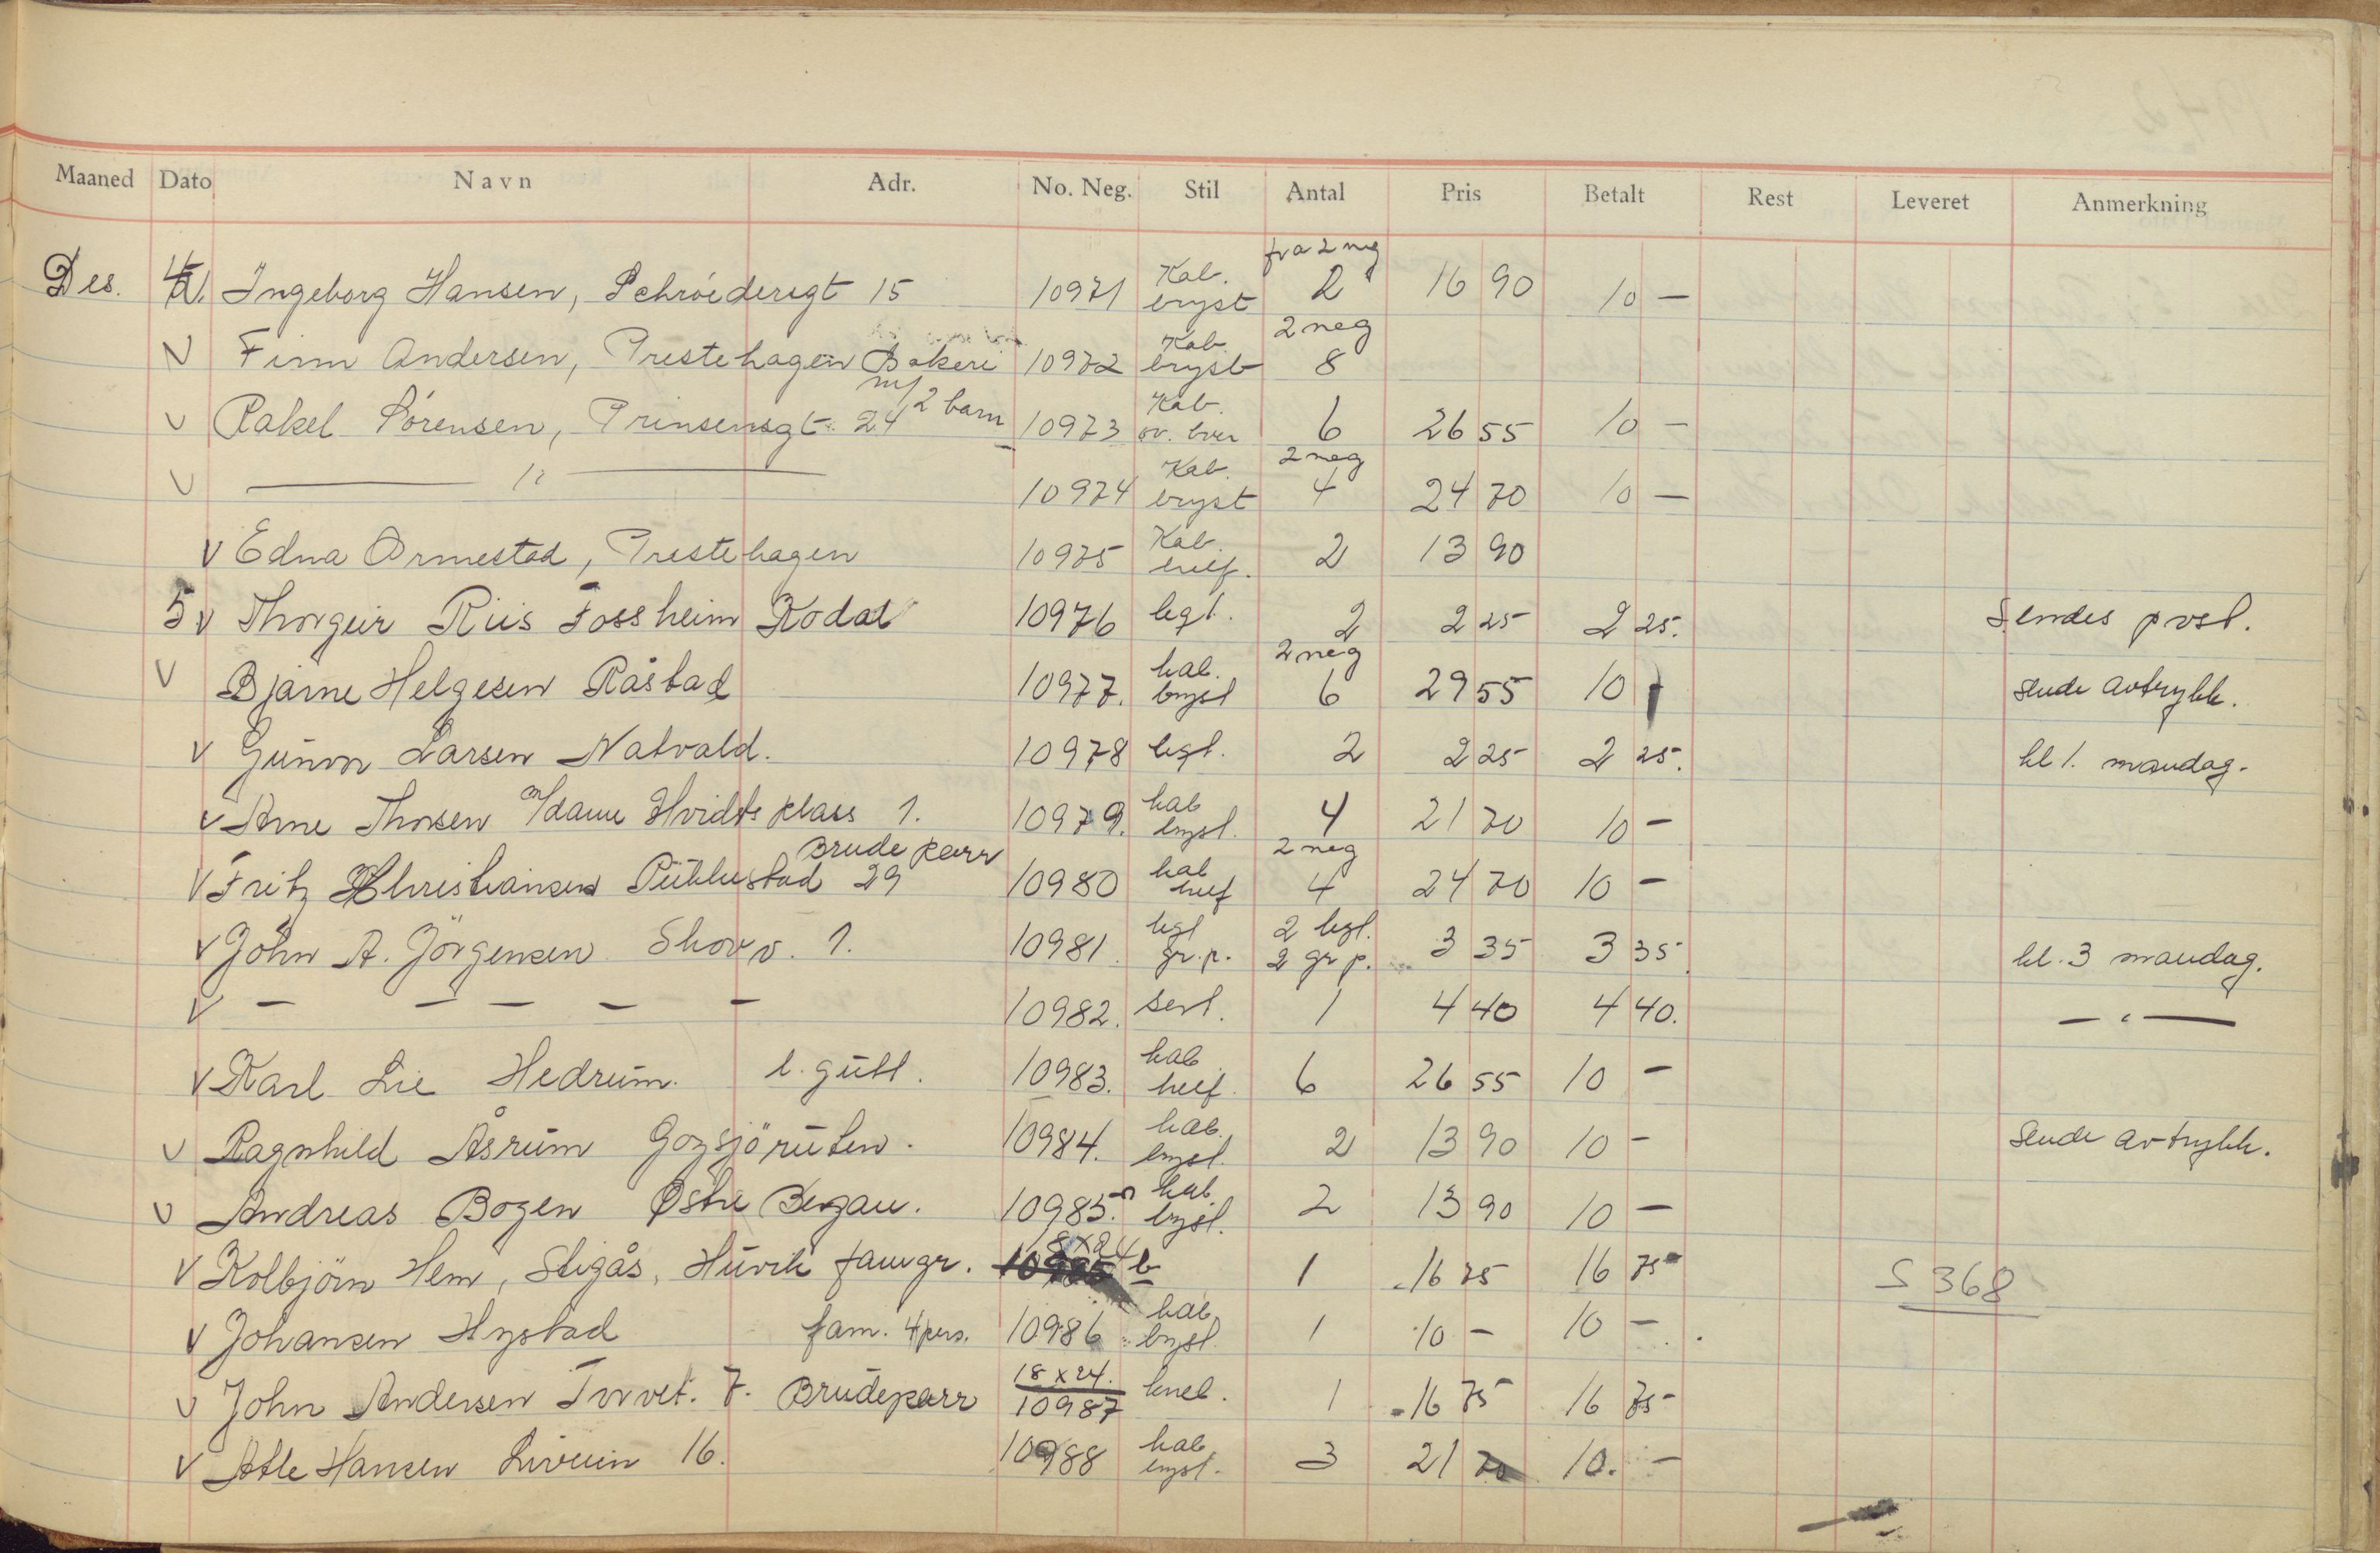 Maaned Dato Navn Adr. No. Neg. Stil Antal Pris Betalt Rest Leveret Anmerkning
fra 2 neg
Des. 4 V. Ingeborg Hansen, Schrøedersgt 15 10971 Kab. bryst 2 16 90 10 —
2 neg
V Finn Andersen, Prestehagen Bakeri 10972 Kab. bryst 8
m/2 barn
V Rakel Sörensen, Prinsensgt. 24 10973 Kab. ov. hver 6 26 55 10 —
2 neg
V —— " —— 10974 Kab. bryst 4 24 70 10 —
V Edna Ormestad, Prestehagen 10975 Kab. huef. 2 13 90
5 V Thorgeir Riis Fossheim Kodal 10976 legt. 2 2 25 2 25. Sendes post.
2 neg
V Bjarne Helgesen Råstad 10977. kab. bryst 6 29 55 10 — sende avtrykk.
V Gunvor Larsen Natvald. 10978 legt. 2 2 25 2 25. kl 1. mandag.
V Arne Thorsen m/dame Hvidts plass 1. 10979. kab bryst. 4 21 70 10 —
Brudepar 2 neg
V Fritz Christiansen Pukkestad 29 10980 kab huef 4 24 70 10 —
V John A. Jörgensen Skovv. 1. 10981. legt gr.p. 2 legt. 2 gr p. 3 35 3 35. kl. 3 mandag.
V — — — — — 10982. sert. 1 4 40 4 40. — " —
V Karl Lie Hedrum. l. gutt. 10983. kab huef. 6 26 55 10 —
V Ragnhild Åsrum Gogsjöruten. 10984. kab. bryst. 2 13 90 10 — Sende avtrykk.
V Andreas Bogen Østre Bergan. 10985. kab. bryst. 2 13 90 10 —
V Kolbjörn Hem, Stigås, Huvik famgr. 10985 b 1 16 75 16 75 S 368
V Johansen Hystad fam. 4 pers. 10986 kab. bryst. 1 10 — 10 —
V John Andersen Torvet. 7. Brudepar 18 x 24. 10987 knel. 1 16 75 16 75
V Atle Hansen Liveien 16. 10988 kab bryst. 3 21 70 10. —